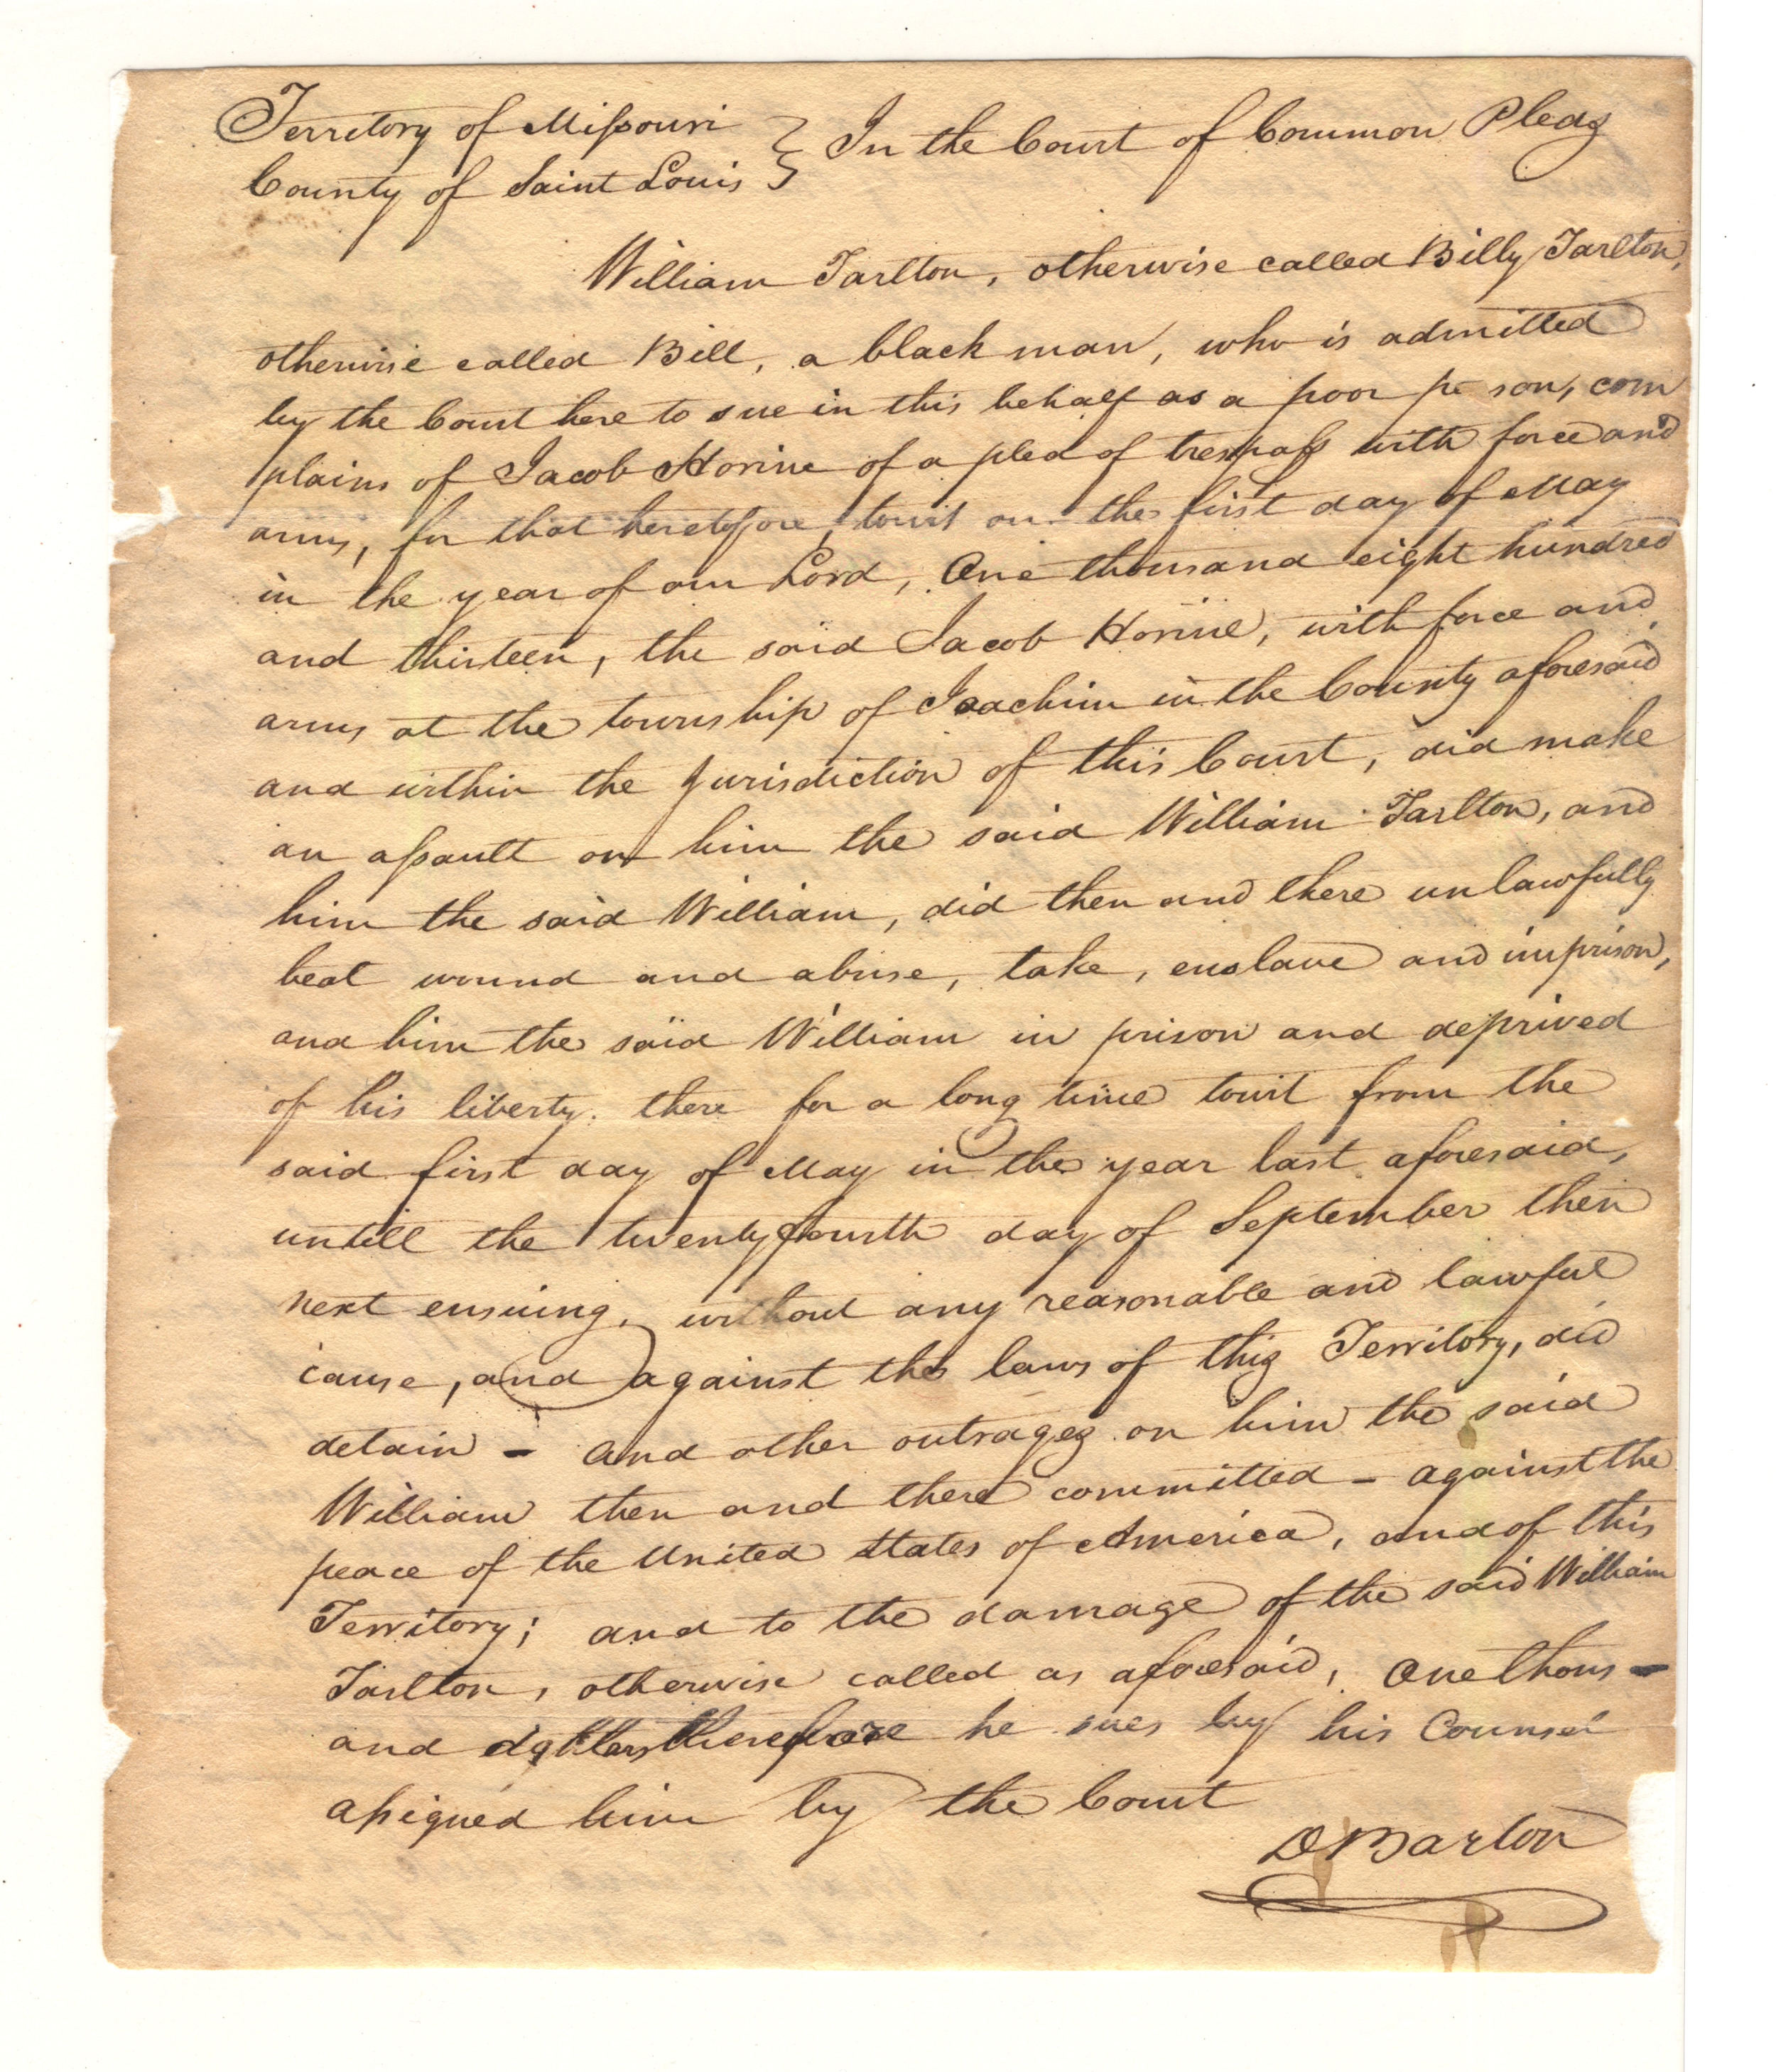 Territory of Missouri } In the Court of Common Pleas
County of Saint Louis
William Tarlton, otherwise called Billy Tarlton,
otherwise called Bill, a black man, who is admitted
by the Court here to sue in this behalf as a poor pe son, com
plains of Jacob Horine of a plea of trespass with force and
arms, for that heretofore, towit on the first day of May
in the year of our Lord, One thousand eight hundred
and thirteen, the said Jacob Horine, with force and
arms at the township of Joachim in the County aforesaid
and within the jurisdiction of this Court, did make
an assault on him the said William Tarlton, and
him the said William, did then and there unlawfully
beat wound and abuse, take, enslave and imprison,
and him the said William in prison and deprived
of his liberty. there for a long time towit from the
said first day of May in the year last aforesaid,
untill the twenty fourth day of September then
next ensuing, without any reasonable and lawful
cause, and against the laws of this Territory, did
detain - and other outrages on him the said
William then and there committed - against the
peace of the United States of America, and of this
Territory; and to the damage of the said William
Tarlton, otherwise called as aforesaid, One thous-
and dollars therefore he sues by his Counsel
assigned him by the Court
D Barton